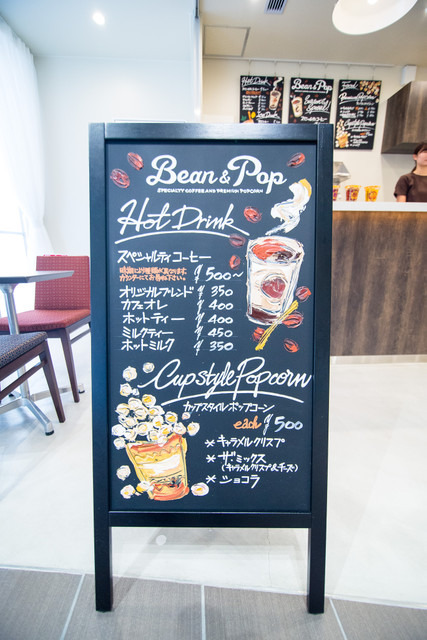 Bean & Pop
SPECIALTY COFFEE AND PREMIUM POPCORN
Hot Drink
スペシャルティコーヒー
¥500~
オリジナルブレンド ¥350
カフェオレ ¥400
ホットティー ¥400
ミルクティー ¥450
ホットミルク ¥350
Cup style Popcorn
カップスタイルポップコーン
each ¥500
* キャラメルクリスプ
* ザ・ミックス
(キャラメルクリスプ&チーズ)
* ショコラ
Hot Drink
Bean & Pop
Food